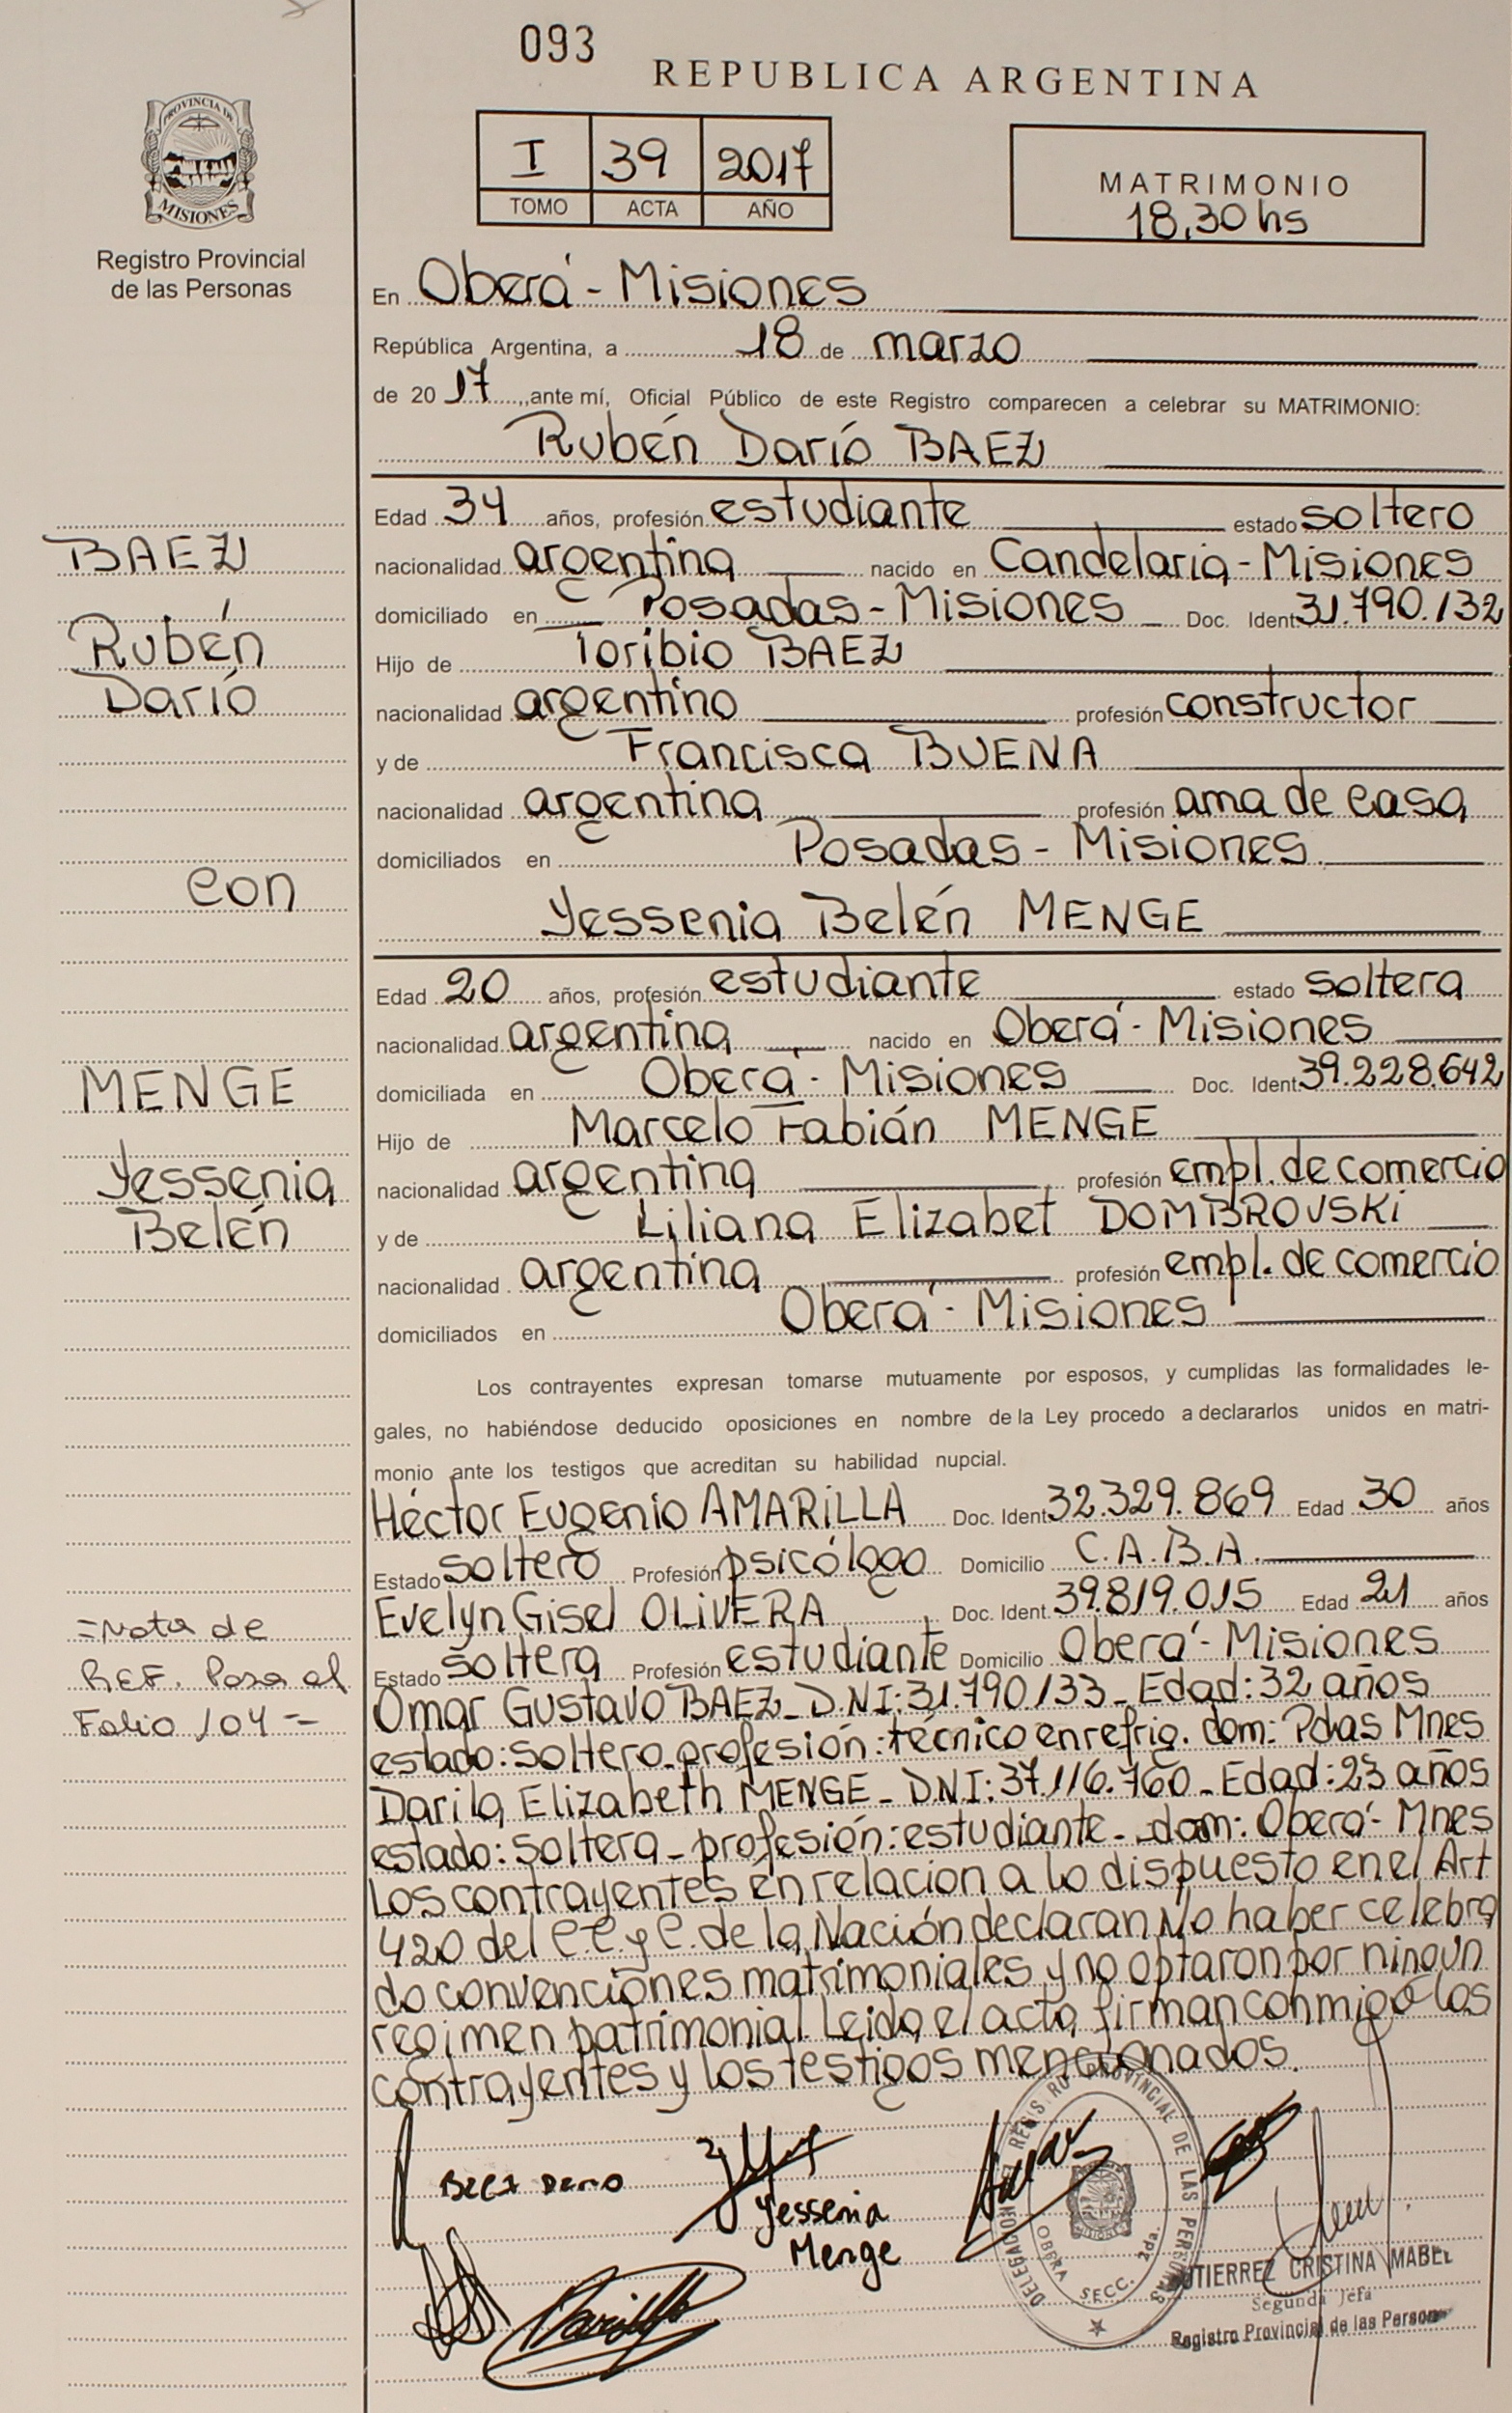 093
REPUBLICA ARGENTINA
I 39 2017
TOMO ACTA AÑO
MATRIMONIO
18,30 hs
PROVINCIA DE
MISIONES
Registro Provincial
de las Personas
En Oberá - Misiones
República Argentina, a 18 de marzo
de 20 17, ante mí, Oficial Público de este Registro comparecen a celebrar su MATRIMONIO:
Rubén Darío BAEZ
Edad 34 años, profesión estudiante estado soltero
nacionalidad argentina nacido en Candelaria - Misiones
domiciliado en Posadas - Misiones Doc. Ident. 31.790.132
Hijo de Toribio BAEZ
nacionalidad argentino profesión constructor
y de Francisca BUENA
nacionalidad argentina profesión ama de casa
domiciliados en Posadas - Misiones.
Yessenia Belén MENGE
Edad 20 años, profesión estudiante estado soltera
nacionalidad argentina nacido en Oberá - Misiones
domiciliada en Oberá - Misiones Doc. Ident. 39.228.642
Hijo de Marcelo Fabián MENGE
nacionalidad argentina profesión empl. de comercio
y de Liliana Elizabet DOMBROVSKI
nacionalidad argentina profesión empl. de comercio
domiciliados en Oberá - Misiones
BAEZ
Rubén
Darío
con
MENGE
Yessenia
Belén
Los contrayentes expresan tomarse mutuamente por esposos, y cumplidas las formalidades le-
gales, no habiéndose deducido oposiciones en nombre de la Ley procedo a declararlos unidos en matri-
monio ante los testigos que acreditan su habilidad nupcial.
Héctor Eugenio AMARILLA Doc. Ident. 32.329.869 Edad 30 años
Estado soltero Profesión psicólogo Domicilio C.A.B.A.
Evelyn Gisel OLIVERA Doc. Ident. 39.819.015 Edad 21 años
Estado soltera Profesión estudiante Domicilio Oberá - Misiones
Omar Gustavo BAEZ - D.N.I: 31.790.133 - Edad: 32 años
estado: soltero - profesión: técnico en refrig. dom: Pdas Mnes
Darila Elizabeth MENGE - D.N.I: 37.116.760 - Edad: 23 años
estado: soltera - profesión: estudiante - dom: Oberá - Mnes
Los contrayentes en relacion a lo dispuesto en el Art
420 del C.C. y C. de la Nación declaran No haber celebra
do convenciones matrimoniales y no optaron por ningun
regimen patrimonial. Leida el acta firman conmigo los
contrayentes y los testigos mencionados.
=Nota de
REF. Pasa al
Folio 104=
Baez Dario
Yessenia
Menge
DELEGACION DEL REGISTRO PROVINCIAL DE LAS PERSONAS
OBERA SECC. 2da.
GUTIERREZ CRISTINA MABEL
Segunda Jefa
Registro Provincial de las Personas